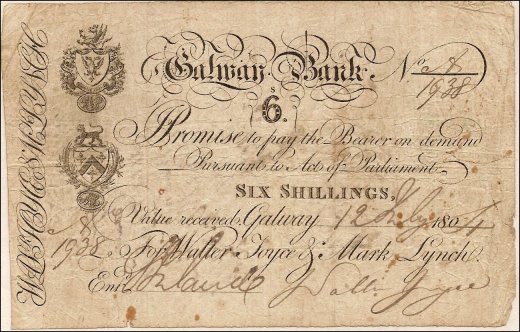 Galway Bank.
No. A
1938
6.S
I Promise to pay the Bearer on demand
Pursuant to Acts of Parliament
SIX SHILLINGS,
Value received, Galway 12 July 1804
A
1938
For Walter Joyce & Mark Lynch.
Entd.
Walter Joyce